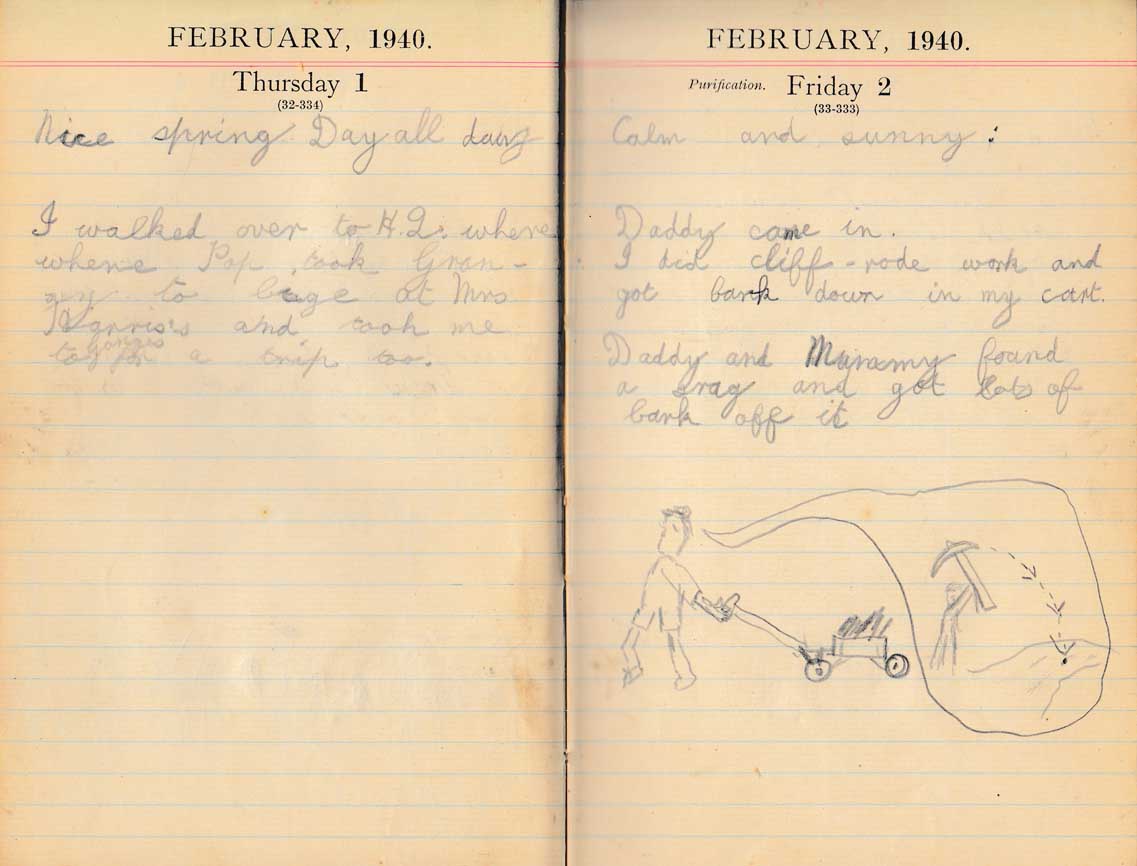 FEBRUARY, 1940.
Thursday 1
(32-334)
Nice spring Day all day
I walked over to H.Q. where
where Pop took Gran-
ny to at Mrs
Harris's and took me
to ganges
for a trip too.
FEBRUARY, 1940.
Purification. Friday 2
(33-333)
Calm and sunny:
Daddy came in.
I did cliff-rode work and
got bark down in my cart.
Daddy and Mummy found
a snag and got lots of
bark off it